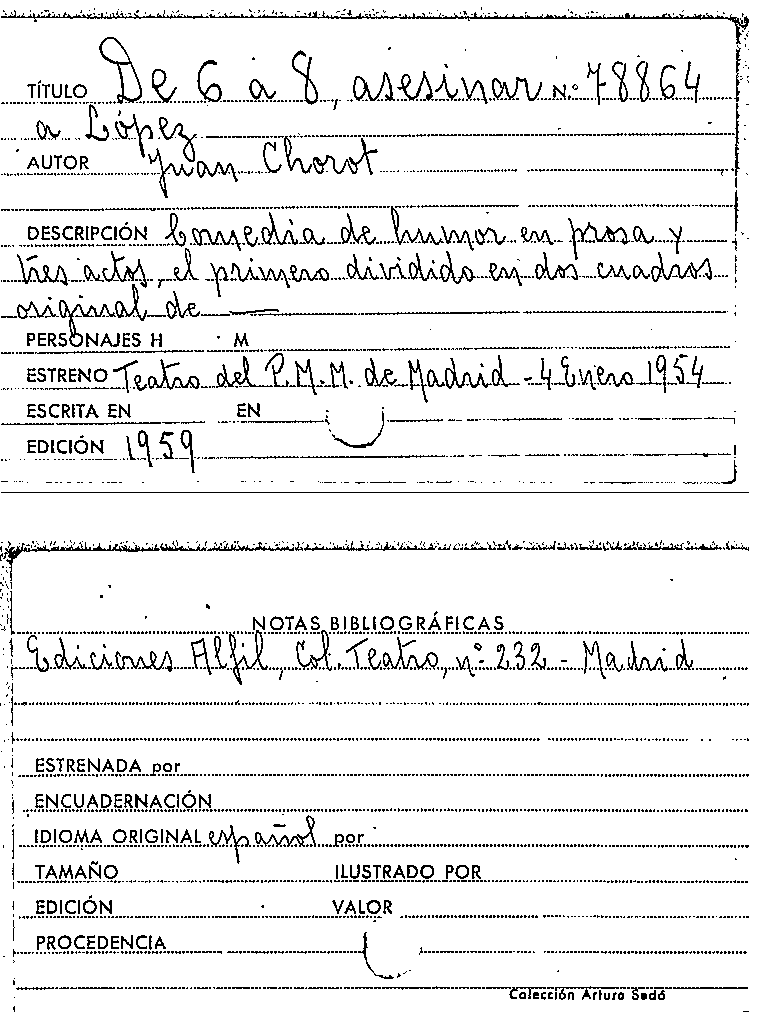 TÍTULO De 6 a 8, asesinar N.º 78864
a López
AUTOR Juan Chorot
DESCRIPCIÓN Comedia de humor en prosa y
tres actos, el primero dividido en dos cuadros
original de —
PERSONAJES H M
ESTRENO Teatro del P.M.M. de Madrid - 4 Enero 1954
ESCRITA EN EN
EDICIÓN 1959
NOTAS BIBLIOGRÁFICAS
Ediciones Alfil, Col. Teatro, nº 232 - Madrid
ESTRENADA por
ENCUADERNACIÓN
IDIOMA ORIGINAL español por
TAMAÑO ILUSTRADO POR
EDICIÓN VALOR
PROCEDENCIA
Colección Arturo Sedó